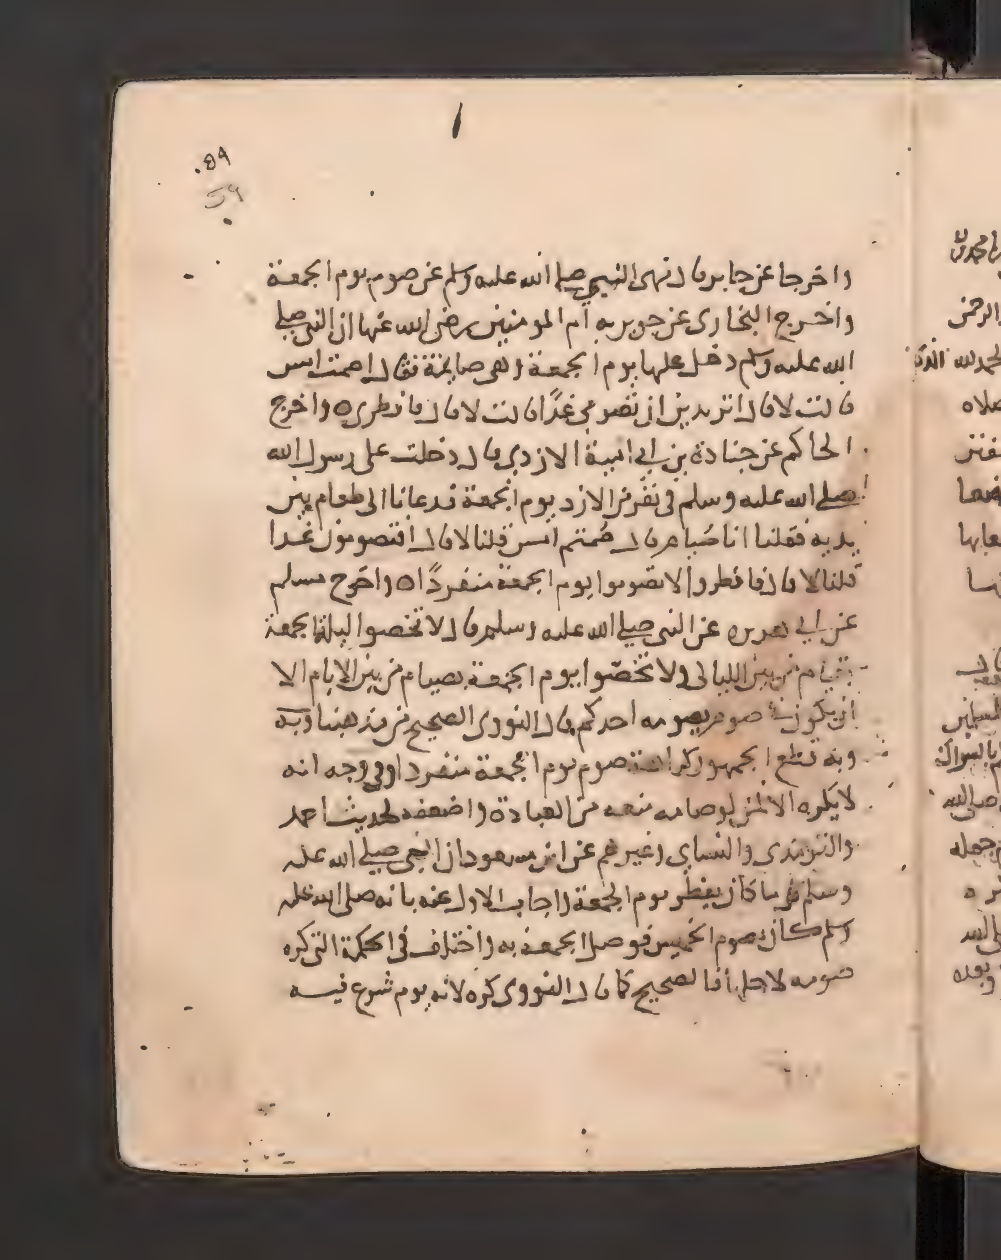 ٥٩
59
واخرجا عن جابر قال نهى النبي صلى الله عليه وسلم عن صوم يوم الجمعة
واخرج البخارى عن جويريه ام المومنين رضى الله عنها ان النبى صلى
الله عليه وسلم دخل عليها يوم الجمعة وهى صايمة فقال اصمت امس
قالت لا قال اتريدين ان تصومى غدًا قالت لا قال فافطرى ه واخرج
الحاكم عن جنادة بن ابى امية الازدي قال دخلت على رسول الله
صلى الله عليه وسلم فى نفر من الازد يوم الجمعة فدعانا الى طعام بين
يديه فقلنا انا صُيام قال صُمتم امس قلنا لا قال افتصومون غدا
قلنا لا قال فافطروا لا تصوموا يوم الجمعة منفردًا ه واخرج مسلم
عن ابى هريره عن النبى صلى الله عليه وسلم قال لا تخصوا ليلة الجمعة
بقيام من بين الليالى ولا تخصّوا يوم الجمعة بصيام من بين الايام الا
ان يكون فى صوم يصومه احدكم قال النووى الصحيح من مذهبنا وبه
وبه قطع الجمهور كراهة صوم يوم الجمعة منفردا وفى وجه انه
لا يكره الا لمن لو صامه منعه من العبادة واضعفه لحديث احمد
والترمذى والنساى وغيرهم عن ابن مسعود ان النبى صلى الله عليه
وسلم قل ما كان يفطر يوم الجمعة واجاب الاول عنه بانه صلى الله عليه
وسلم كان يصوم الخميس فوصل الجمعة به واختلف فى الحكمة التى كره
صومه لاجلها فالصحيح كما قال النووى كره لانه يوم شرع فيه